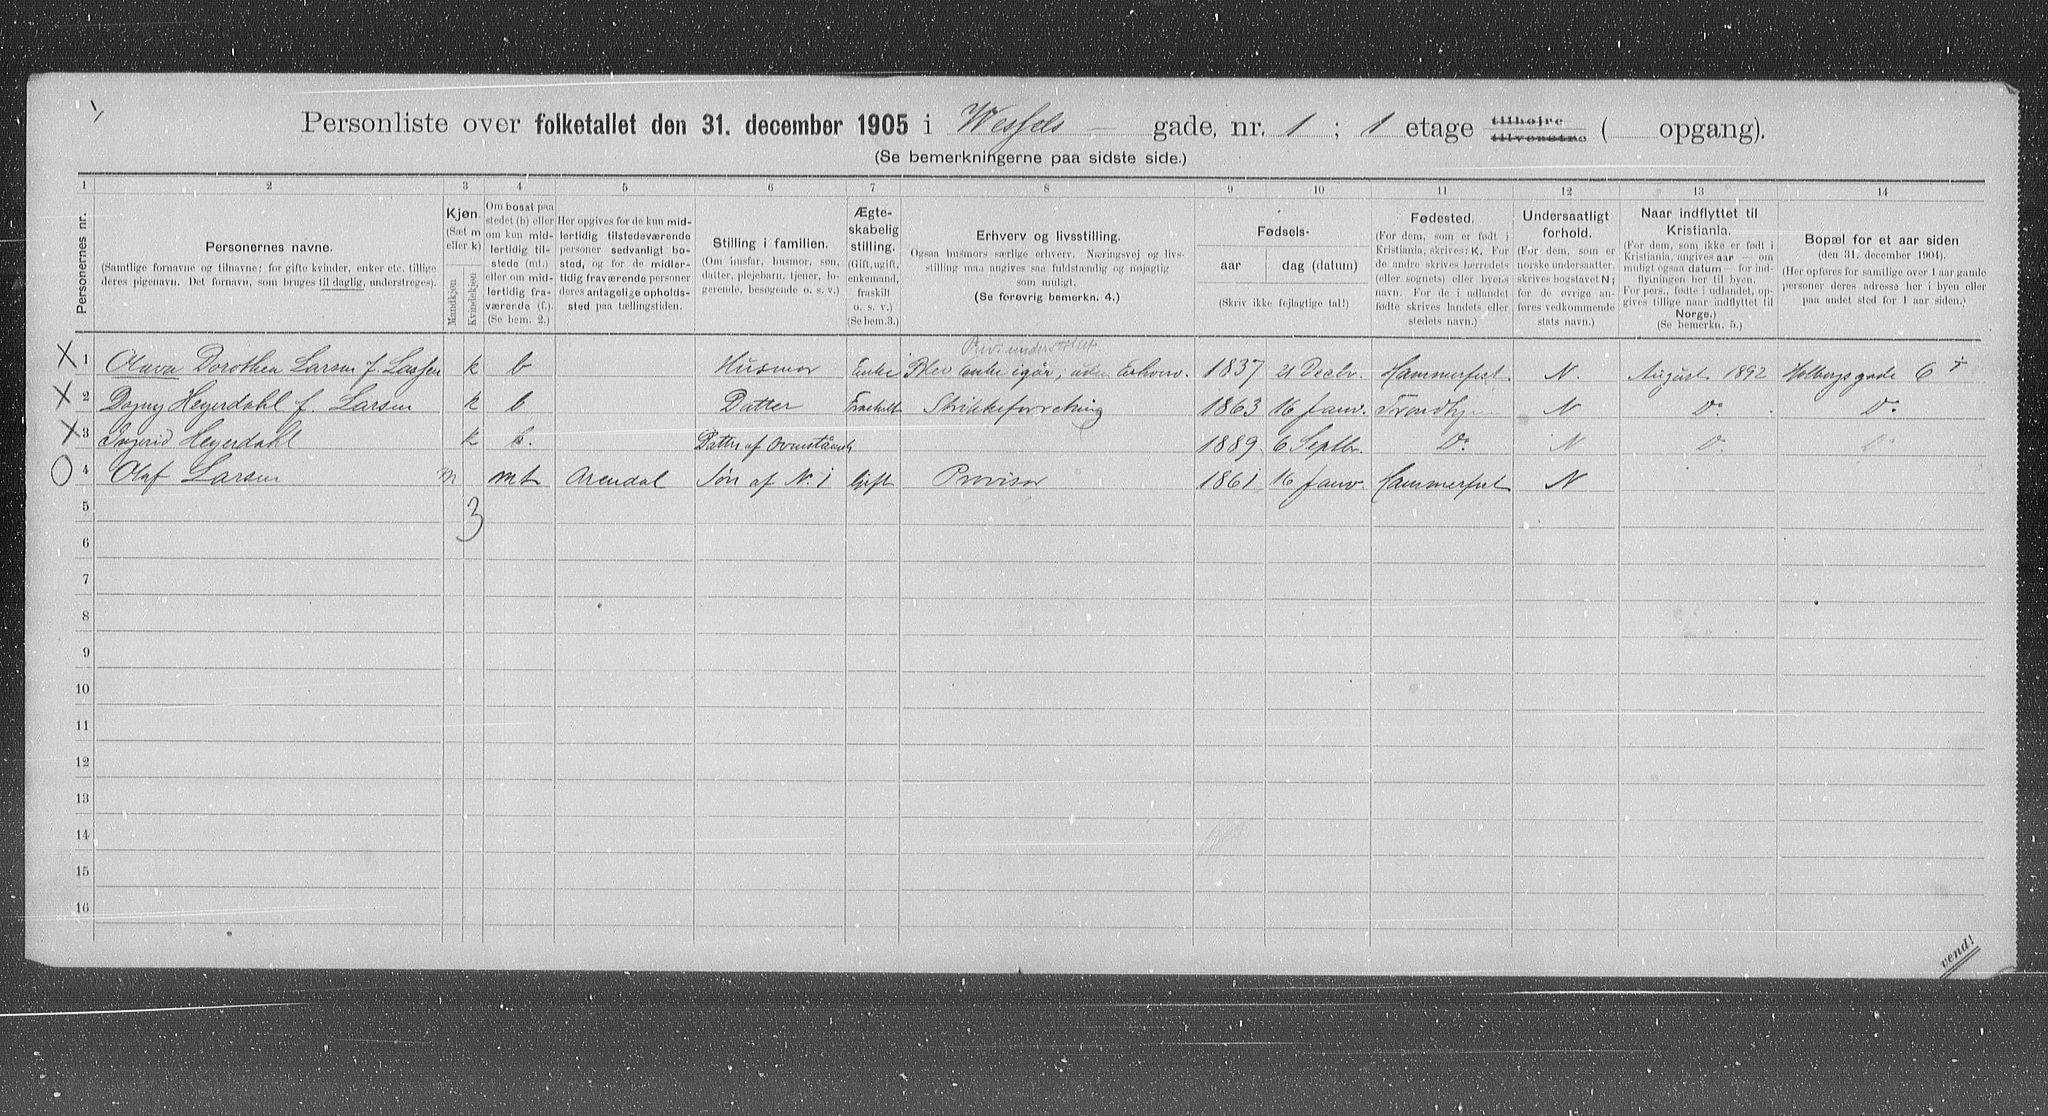 Personliste over folketallet den 31. december 1905 i Wessels — gade, nr. 1 ; 1 etage tilhøjre tilvenstre ( opgang).
(Se bemerkningerne paa sidste side.)
1 2 3 4 5 6 7 8 9 10 11 12 13 14
Personernes nr.
Personernes navne.
(Samtlige fornavne og tilnavne; for gifte kvinder, enker etc. tillige
deres pigenavn. Det fornavn, som bruges til daglig, understreges).
Kjøn.
(Sæt m
eller k)
Mandkjøn
Kvindekjøn
Om bosat paa
stedet (b) eller
om kun mid-
lertidig til-
stede (mt.)
eller om mid-
lertidig fra-
værende (f.).
(Se bem. 2.)
Her opgives for de kun mid-
lertidig tilstedeværende
personer sedvanligt bo-
sted, og for de midler-
tidig fraværende personer
deres antagelige opholds-
sted paa tællingstiden.
Stilling i familien.
(Om husfar, husmor, søn,
datter, plejebarn, tjener, lo-
gerende, besøgende o. s. v.)
Ægte-
skabelig
stilling.
(Gift, ugift,
enkemand,
fraskilt
o. s. v.)
(Se bem.3.)
Erhverv og livsstilling.
Ogsaa husmors særlige erhverv. Næringsvej og livs-
stilling maa angives saa fuldstændig og nøjagtig
som muligt.
(Se forøvrig bemerkn. 4.)
Fødsels-
aar
dag (datum)
(Skriv ikke fejlagtige tal!)
Fødested.
(For dem, som er født i
Kristiania, skrives: K. For
de andre skrives herredets
(eller sognets) eller byens
navn. For de i udlandet
fødte skrives landets eller
stedets navn.)
Undersaatligt
forhold.
(For dem, som er
norske undersaatter,
skrives bogstavet N;
for de øvrige an-
føres vedkommende
stats navn.)
Naar indflyttet til
Kristiania.
(For dem, som ikke er født i
Kristiania, angives aar — om
muligt ogsaa datum — for ind-
flyttningen her til byen.
For pers., fødte i udlandet, op-
gives tillige naar indflyttet til
Norge.)
(Se bemerkn. 5.)
Bopæl for et aar siden
(den 31. december 1904).
(Her opføres for samtlige over 1 aar gamle
personer deres adresse her i byen eller
paa andet sted for 1 aar siden.)
Privs understøttet.
X 1 Olava Dorothea Larsen f. Lassen k b Husmor Enke Blev Enke igår; uden Erhverv. 1837 21 Decbr. Hammerfest N. August 1892 Holbergs gade 6
X 2 Dagny Heyerdahl f. Larsen k b Datter Fraskilt Strikkeforretning 1863 16 Janv. Trondhjem N Do. Do.
X 3 Ingrid Heyerdahl k b. Datter af Ovenstående 1889 6 Septbr. Do. N Do. Do.
O 4 Olaf Larsen m mt Arendal Søn af N. 1 Gift Provisor 1861 16 Janv. Hammerfest N
5 3
6
7
8
9
10
11
12
13
14
15
16
vend!